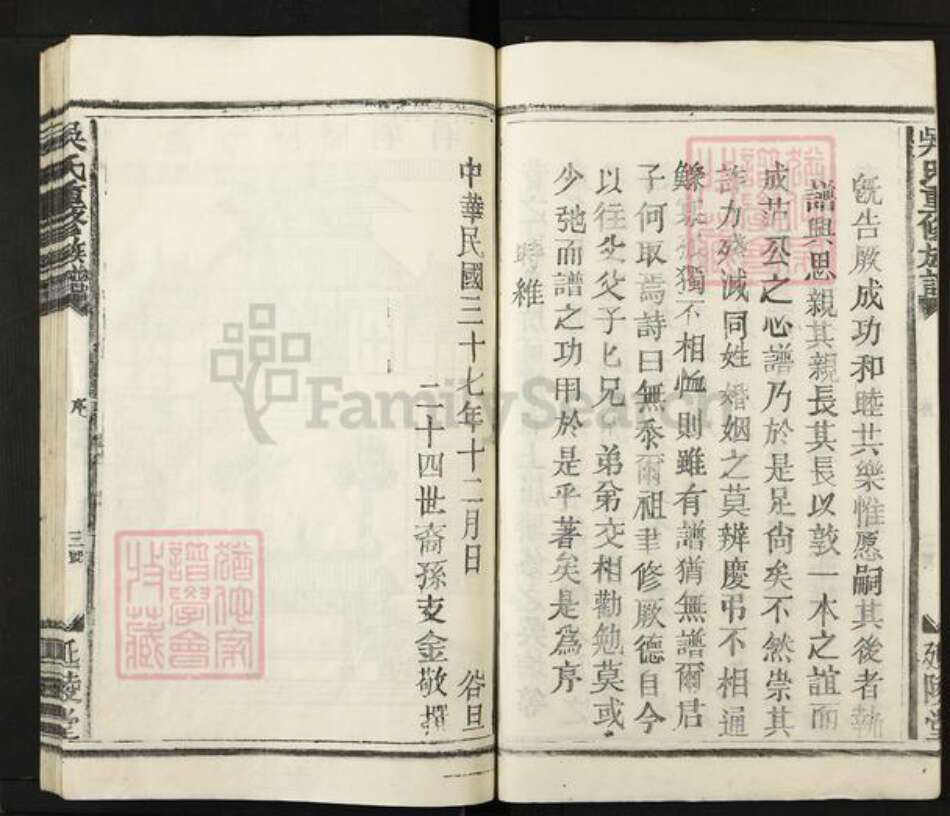 吳氏重修族譜
既告厥成功和睦共樂惟愿嗣其後者執
譜興思親其親長其長以敦一本之誼而
成茹公之心譜乃於是足尙矣不然崇其
詐力殘滅同姓婚姻之莫辨慶弔不相通
鰥寡孤獨不相恤則雖有譜猶無譜爾君
子何取焉詩曰無忝爾祖聿修厥德自今
以往父父子匕兄兄弟弟交相勸勉莫或
少弛而譜之功用於是乎著矣是為序
時維
延陵堂
中華民國三十七年十二月日 谷旦
二十四世裔孫支金敬撰
吳氏重修族譜
序
三號
延陵堂
譜學會
收藏
FamilySearch